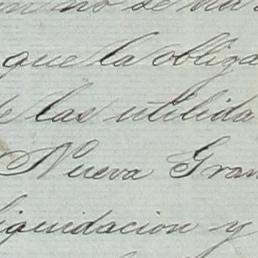 que la obliga
de las utilida
Nueva Gran
liquidacion y